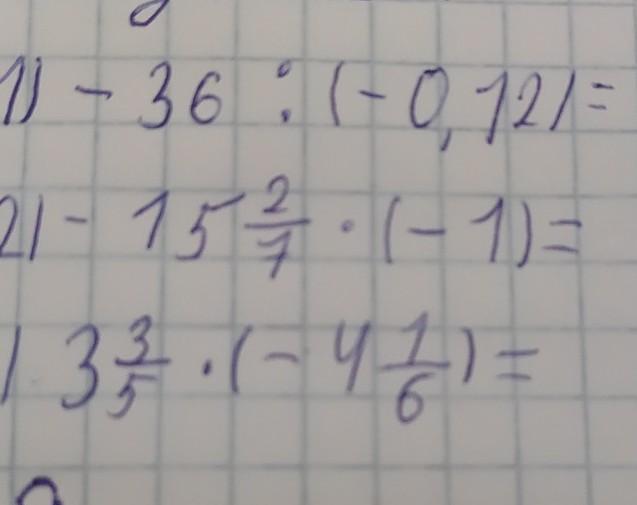 1) - 36 : (- 0,12) =
2) - 15 2/7 · (- 1) =
) 3 3/5 · (- 4 1/6) =